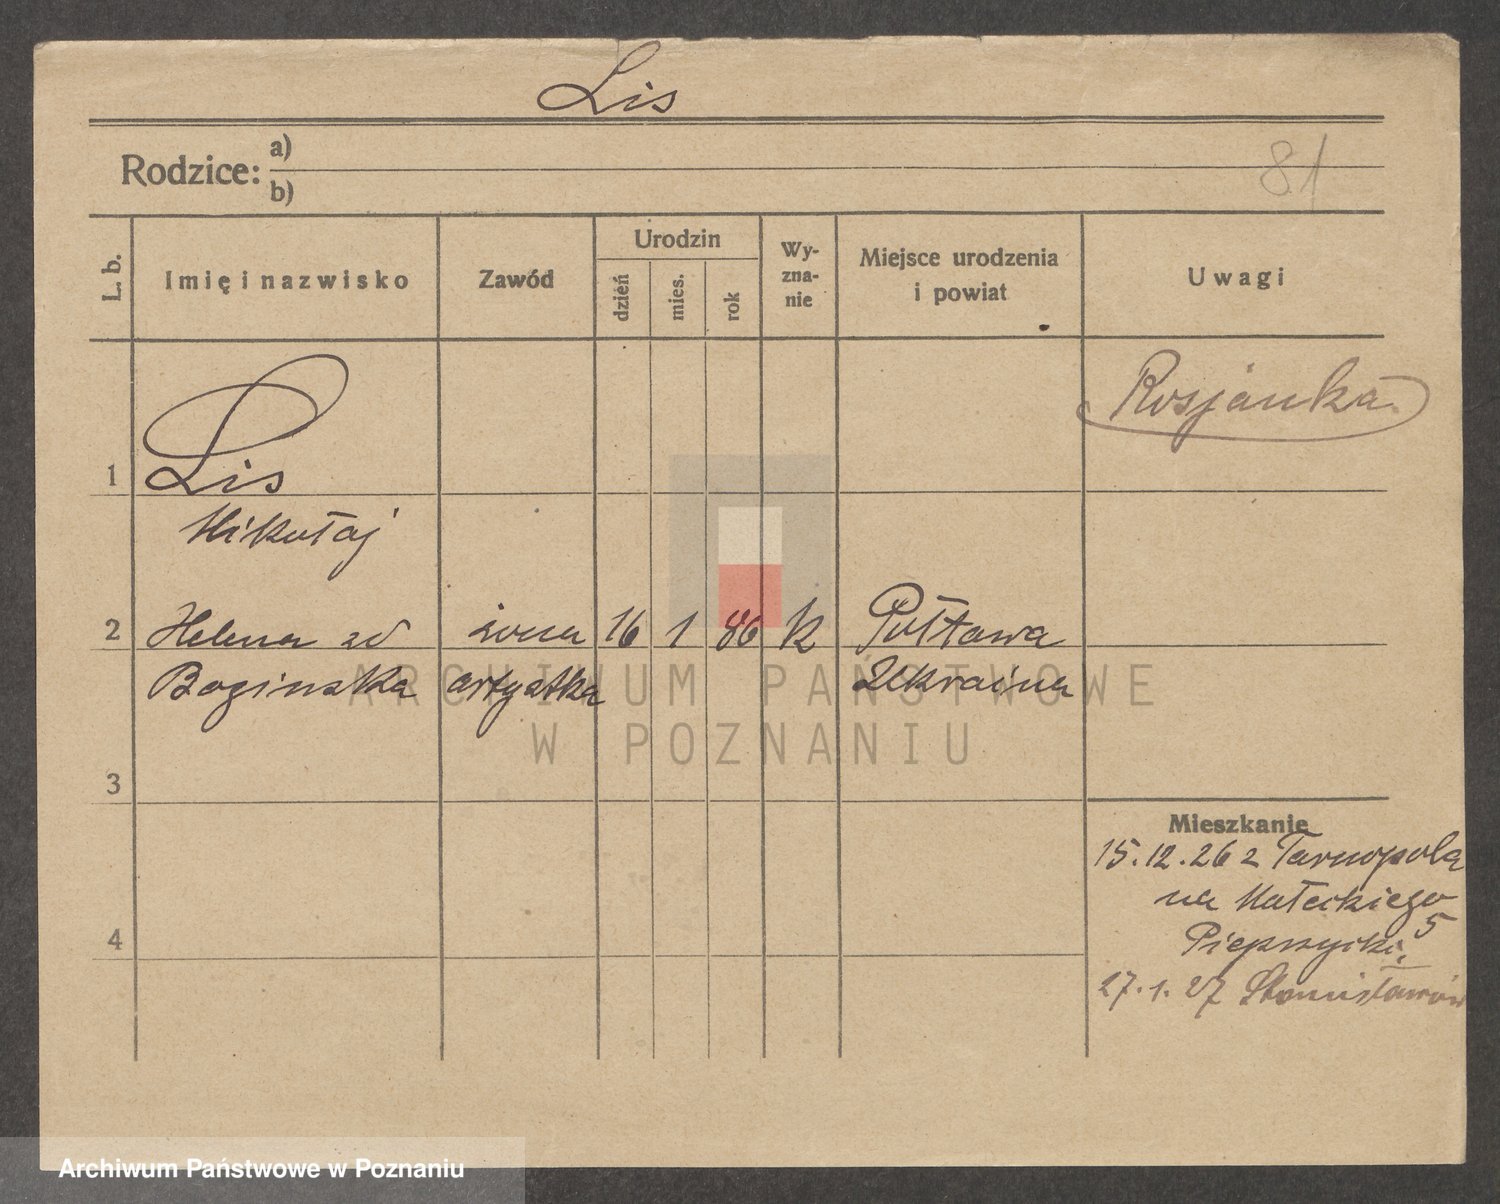 Lis
Rodzice: a)
b)
81
L. b.
Imię i nazwisko
Zawód
Urodzin
dzień
mies.
rok
Wy-
zna-
nie
Miejsce urodzenia
i powiat
Uwagi
1
Lis
Mikołaj
Rosjanka.
2
Helena zd
Boginska
żona
artystka
16
1
86
k
Połtawa
Ukraina
3
4
Mieszkanie
15.12.26 z Tarnopola
na Małeckiego
5
27.1.27 Stanisławów
ARCHIWUM PAŃSTWOWE
W POZNANIU
Archiwum Państwowe w Poznaniu